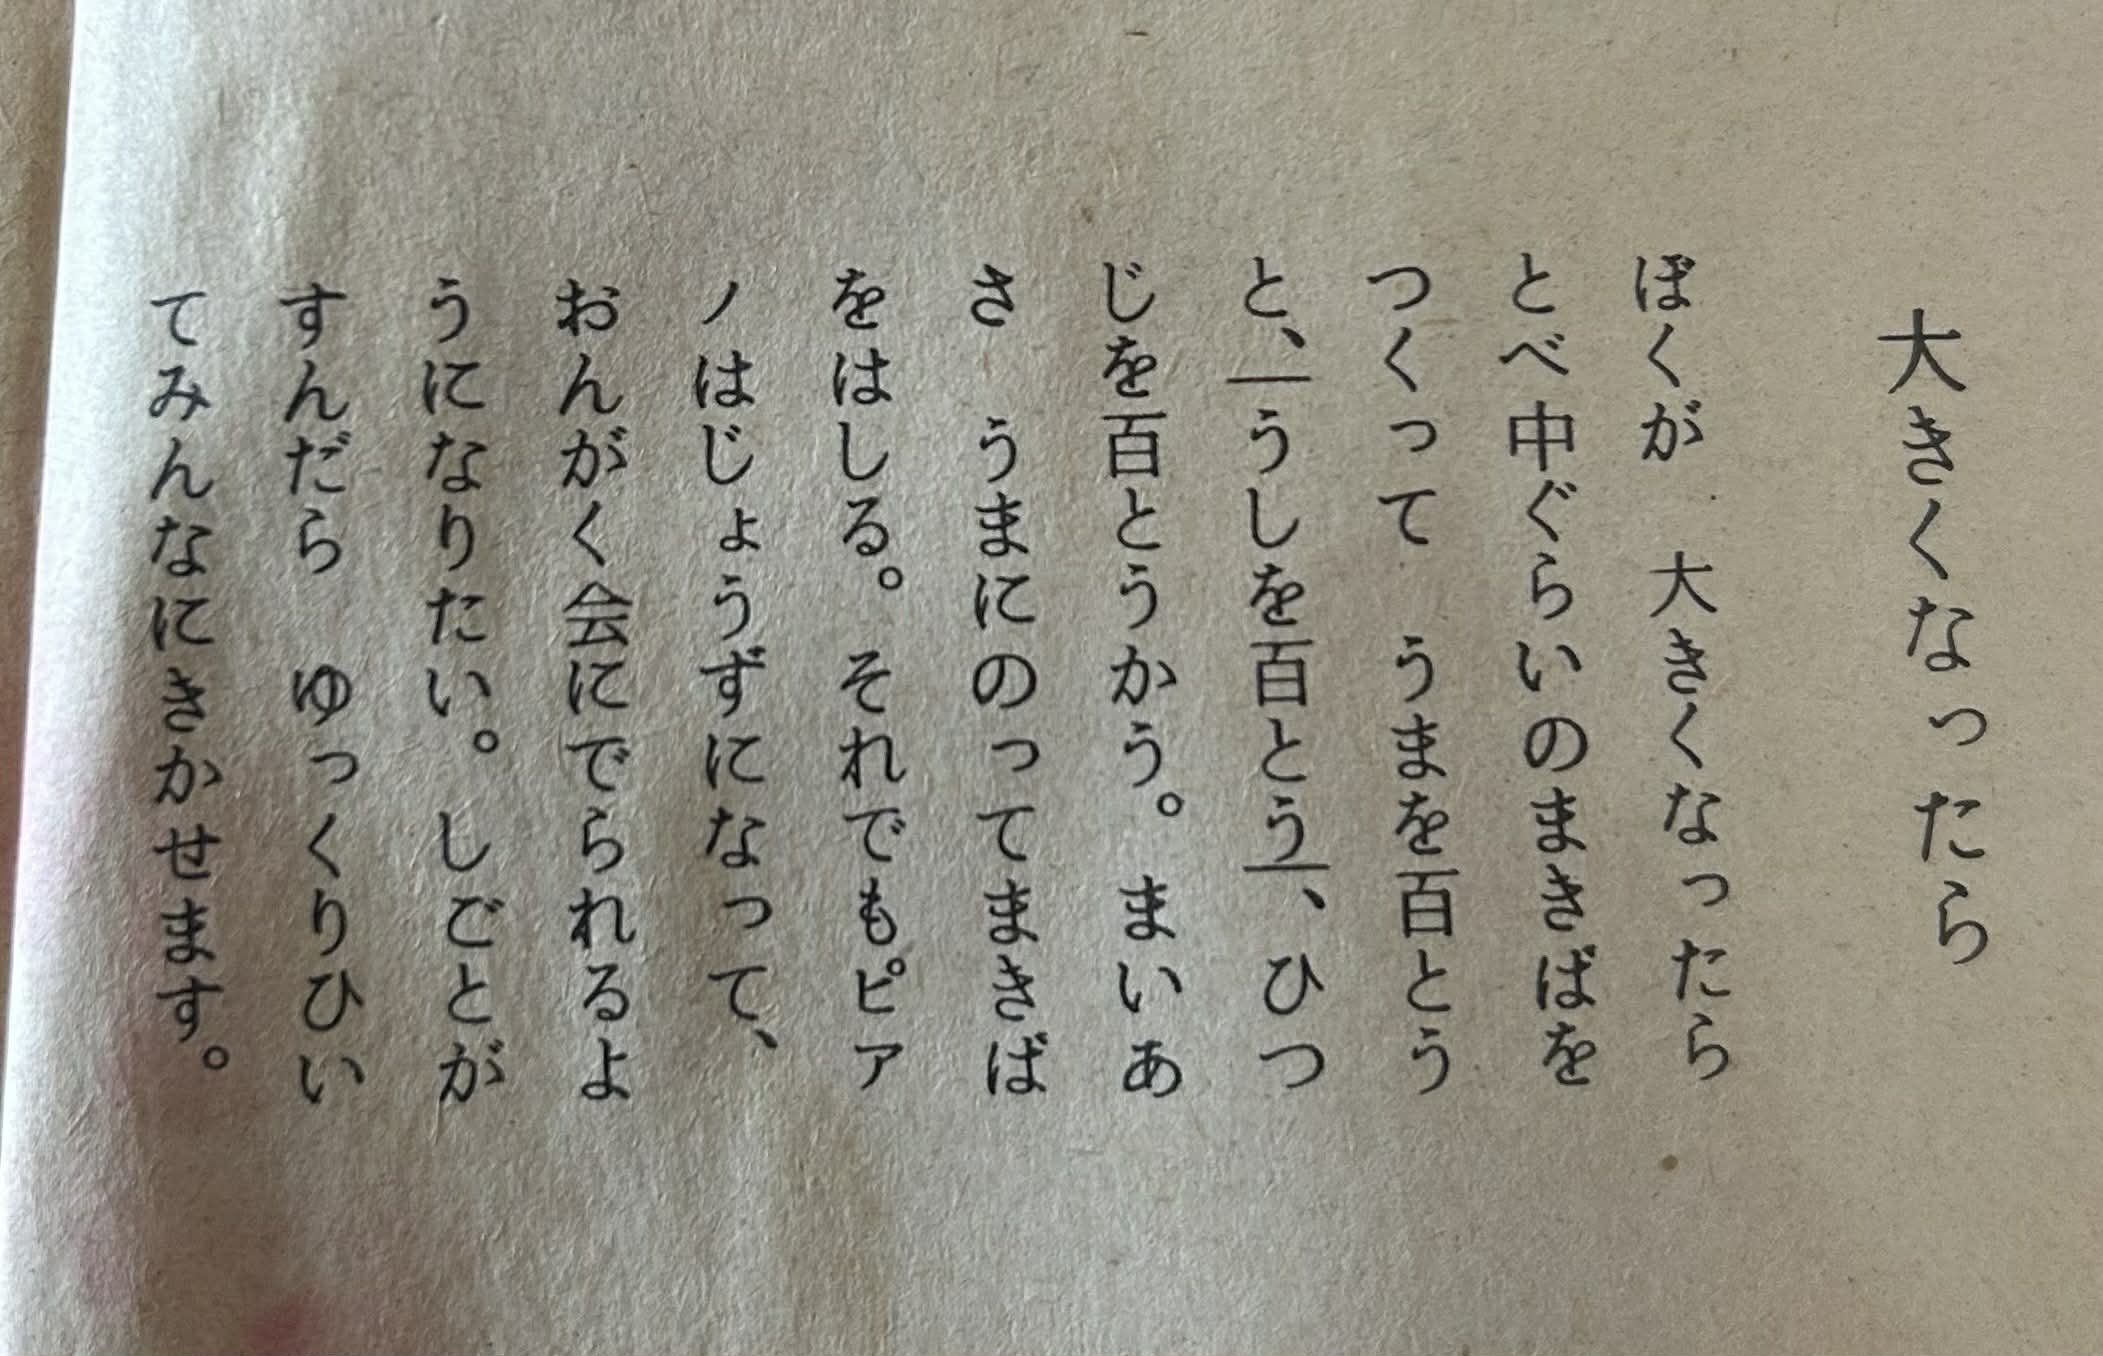 大きくなったら
ぼくが　大きくなったら
とべ中ぐらいのまきばを
つくって　うまを百とう
と、うしを百とう、ひつ
じを百とうかう。まいあ
さ　うまにのってまきば
をはしる。それでもピア
ノはじょうずになって、
おんがく会にでられるよ
うになりたい。しごとが
すんだら　ゆっくりひい
てみんなにきかせます。